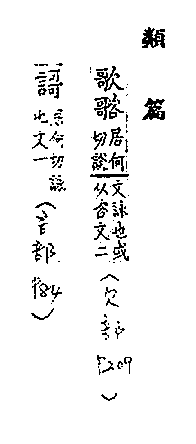 類篇
歌哥 居何切説文詠也或从言文二(欠部 P209)
謌 居何切詠也文一(言部 P84)